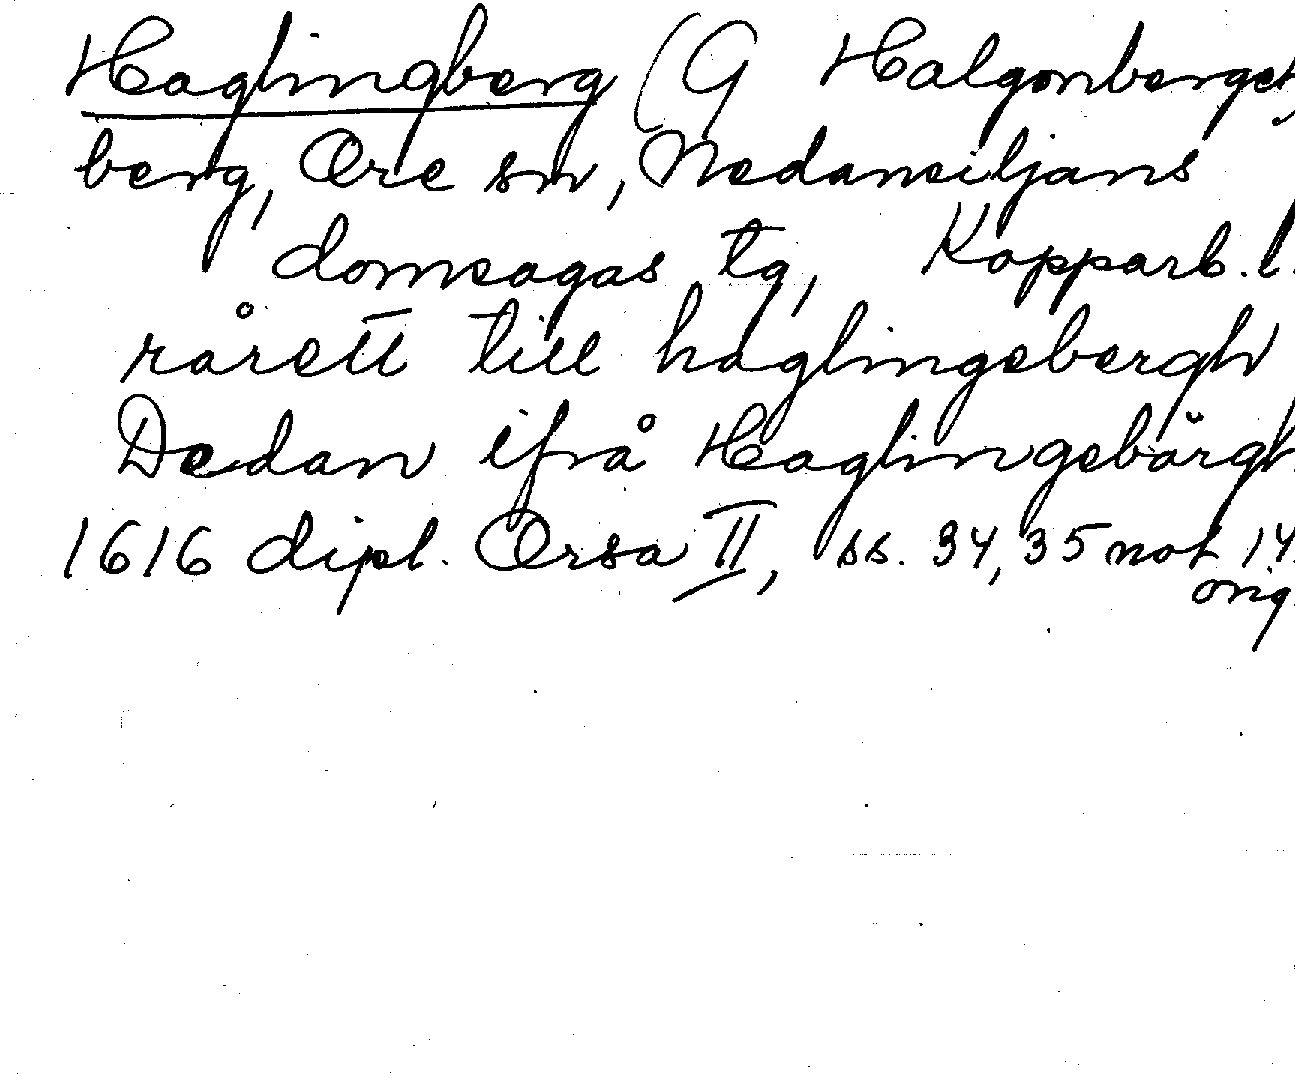 Haglingberg (G Halgonberget)
berg, Ore sn, Nedansiljans
domsagas tg, Kopparb. l.
rårett till haglingebergh
Dedan ifrå Haglingebärgh
1616 dipl. Orsa II, ss. 34, 35 not 14
orig.